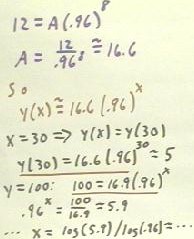 12 = A(.96)^8
A = 12/.96^8 ≅ 16.6
So
y(x) ≅ 16.6 (.96)^x
x = 30 ⇒ y(x) = y(30)
y(30) = 16.6(.96)^30 ≈ 5
y = 100: 100 = 16.9(.96)^x
.96^x = 100/16.9 = 5.9
... x = log(5.9)/log(.96) = ...